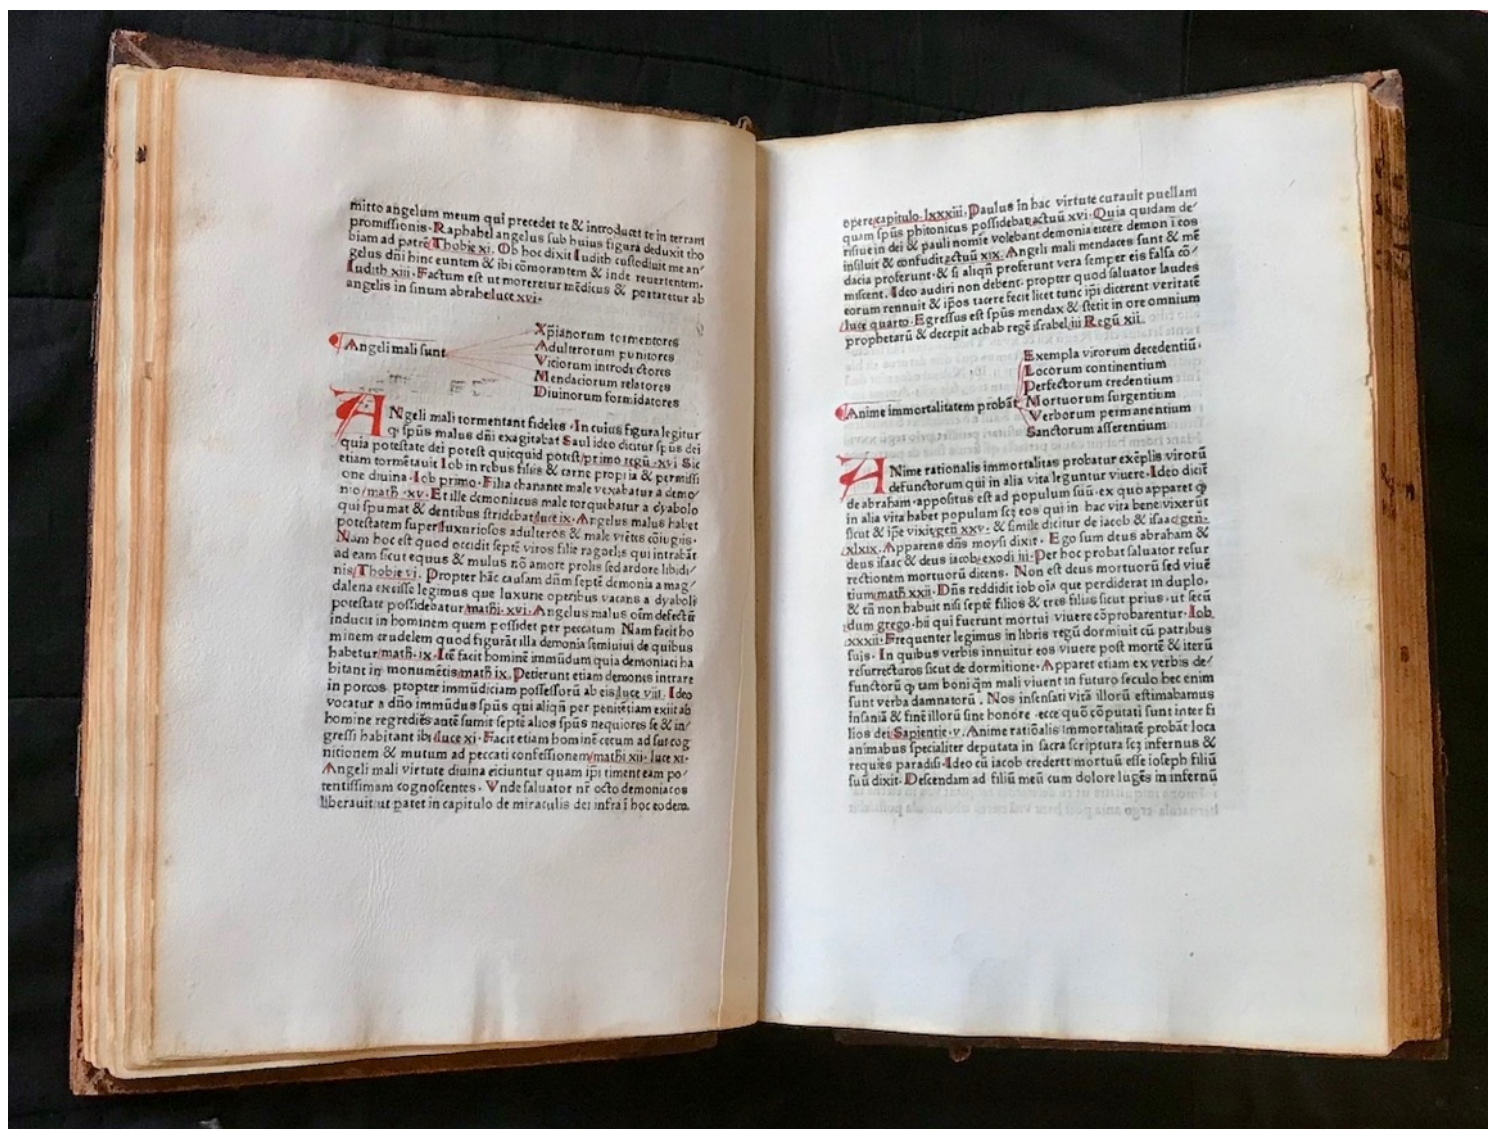 mitto angelum meum qui precedet te & introducet te in terram
promissionis. Raphahel angelus sub huius figura deduxit tho
biam ad patrē Thobie xi. Ob hoc dixit Iudith custodiuit me an⸗
gelus dñi hinc euntem & ibi cōmorantem & inde reuertentem.
Iudith xiii. Factum est ut moreretur mēdicus & portaretur ab
angelis in sinum abrahe luce xvi.
Angeli mali sunt
Xp̄ianorum tormentores
Adulterorum punitores
Viciorum introductores
Mendaciorum relatores
Diuinorum formidatores
ANgeli mali tormentant fideles. In cuius figura legitur
q. spūs malus dñi exagitabat Saul ideo dicitur spūs dei
quia potestate dei potest quicquid potest primo regū. xvi Sic
etiam tormētauit Iob in rebus filiis & carne propria & permissi
one diuina. Iob primo. Filia chananee male vexabatur a demo⸗
nio math. xv. Et ille demoniacus male torquebatur a dyabolo
qui spumat & dentibus stridebat luce ix. Angelus malus habet
potestatem super luxuriosos adulteros & male vtētes cōiugiis.
Nam hoc est quod occidit septē viros filie raguelis qui intrabāt
ad eam sicut equus & mulus nō amore prolis sed ardore libidi⸗
nis Thobie vi. Propter hāc causam dñm septē demonia a mag⸗
dalena eiecisse legimus que luxurie operibus vacans a dyaboli
potestate possidebatur mathi. xvi. Angelus malus oīm defectū
inducit in hominem quem possidet per peccatum Nam facit ho
minem crudelem quod figurāt illa demonia semiuiui de quibus
habetur math. ix. Itē facit hominē immūdum quia demoniaci ha
bitant in monumētis math ix. Petierunt etiam demones intrare
in porcos propter immūdiciam possessorū ab eis luce viii. Ideo
vocatur a dño immūdus spūs qui aliqñ per penitētiam exiit ab
homine regrediēs autē sumit septē alios spūs nequiores se & in⸗
gressi habitant ibi luce xi. Facit etiam hominē cecum ad sui cog
nitionem & mutum ad peccati confessionem mathi xii. luce xi.
Angeli mali virtute diuina eiciuntur quam ip̄i timent eam po⸗
tentissimam cognoscentes. Vnde saluator nr̄ octo demoniacos
liberauit ut patet in capitulo de miraculis dei infra ī hoc eodem
opere capitulo. lxxxiii. Paulus in hac virtute curauit puellam
quam spūs phitonicus possidebat actuū xvi. Quia quidam de⸗
risiue in dei & pauli nomīe volebant demonia eicere demon ī eos
insiluit & confudit actuū xix. Angeli mali mendaces sunt & mē
dacia proferunt. & si aliqñ proferunt vera semper eis falsa cō⸗
miscent. Ideo audiri non debent. propter quod saluator laudes
eorum rennuit & ip̄os tacere fecit licet tunc ip̄i dicerent veritatē
luce quarto. Egressus est spūs mendax & stetit in ore omnium
prophetarū & decepit achab regē israhel iii Regū xii.
Anime immortalitatem probāt
Exempla virorum decedentiū.
Locorum continentium
Perfectorum credentium
Mortuorum surgentium
Verborum permanentium
Sanctorum asserentium
ANime rationalis immortalitas probatur exēplis virorū
defunctorum qui in alia vita leguntur viuere. Ideo dicit̄
de abraham. appositus est ad populum suū. ex quo apparet ꝙ
in alia vita habet populum scꝫ eos qui in hac vita bene vixerūt
sicut & ip̄e vixit gen̄ xxv. & simile dicitur de iacob & isaac gen̄.
xlxix. Apparens dñs moysi dixit. Ego sum deus abraham &
deus isaac & deus iacob exodi iii. Per hoc probat saluator resur
rectionem mortuorū dicens. Non est deus mortuorū sed viuē
tium math xxii. Dñs reddidit iob oīa que perdiderat in duplo.
& tñ non habuit nisi septē filios & tres filias sicut prius. ut secū
dum grego. hii qui fuerunt mortui viuere cōprobarentur. Iob
xxxii. Frequenter legimus in libris regū dormiuit cū patribus
suis. In quibus verbis innuitur eos viuere post mortē & iterū
resurrecturos sicut de dormitione. Apparet etiam ex verbis de⸗
functorū ꝙ tam boni q̄m mali viuent in futuro seculo hec enim
sunt verba damnatorū. Nos insensati vitā illorū estimabamus
insaniā & finē illorū sine honore. ecce quō cōputati sunt inter fi
lios dei Sapientie. v. Anime ratiōalis immortalitatē probāt loca
animabus specialiter deputata in sacra scriptura scꝫ infernus &
requies paradisi. Ideo cū iacob crederet mortuū esse ioseph filiū
suū dixit. Descendam ad filiū meū cum dolore lugēs in infernū